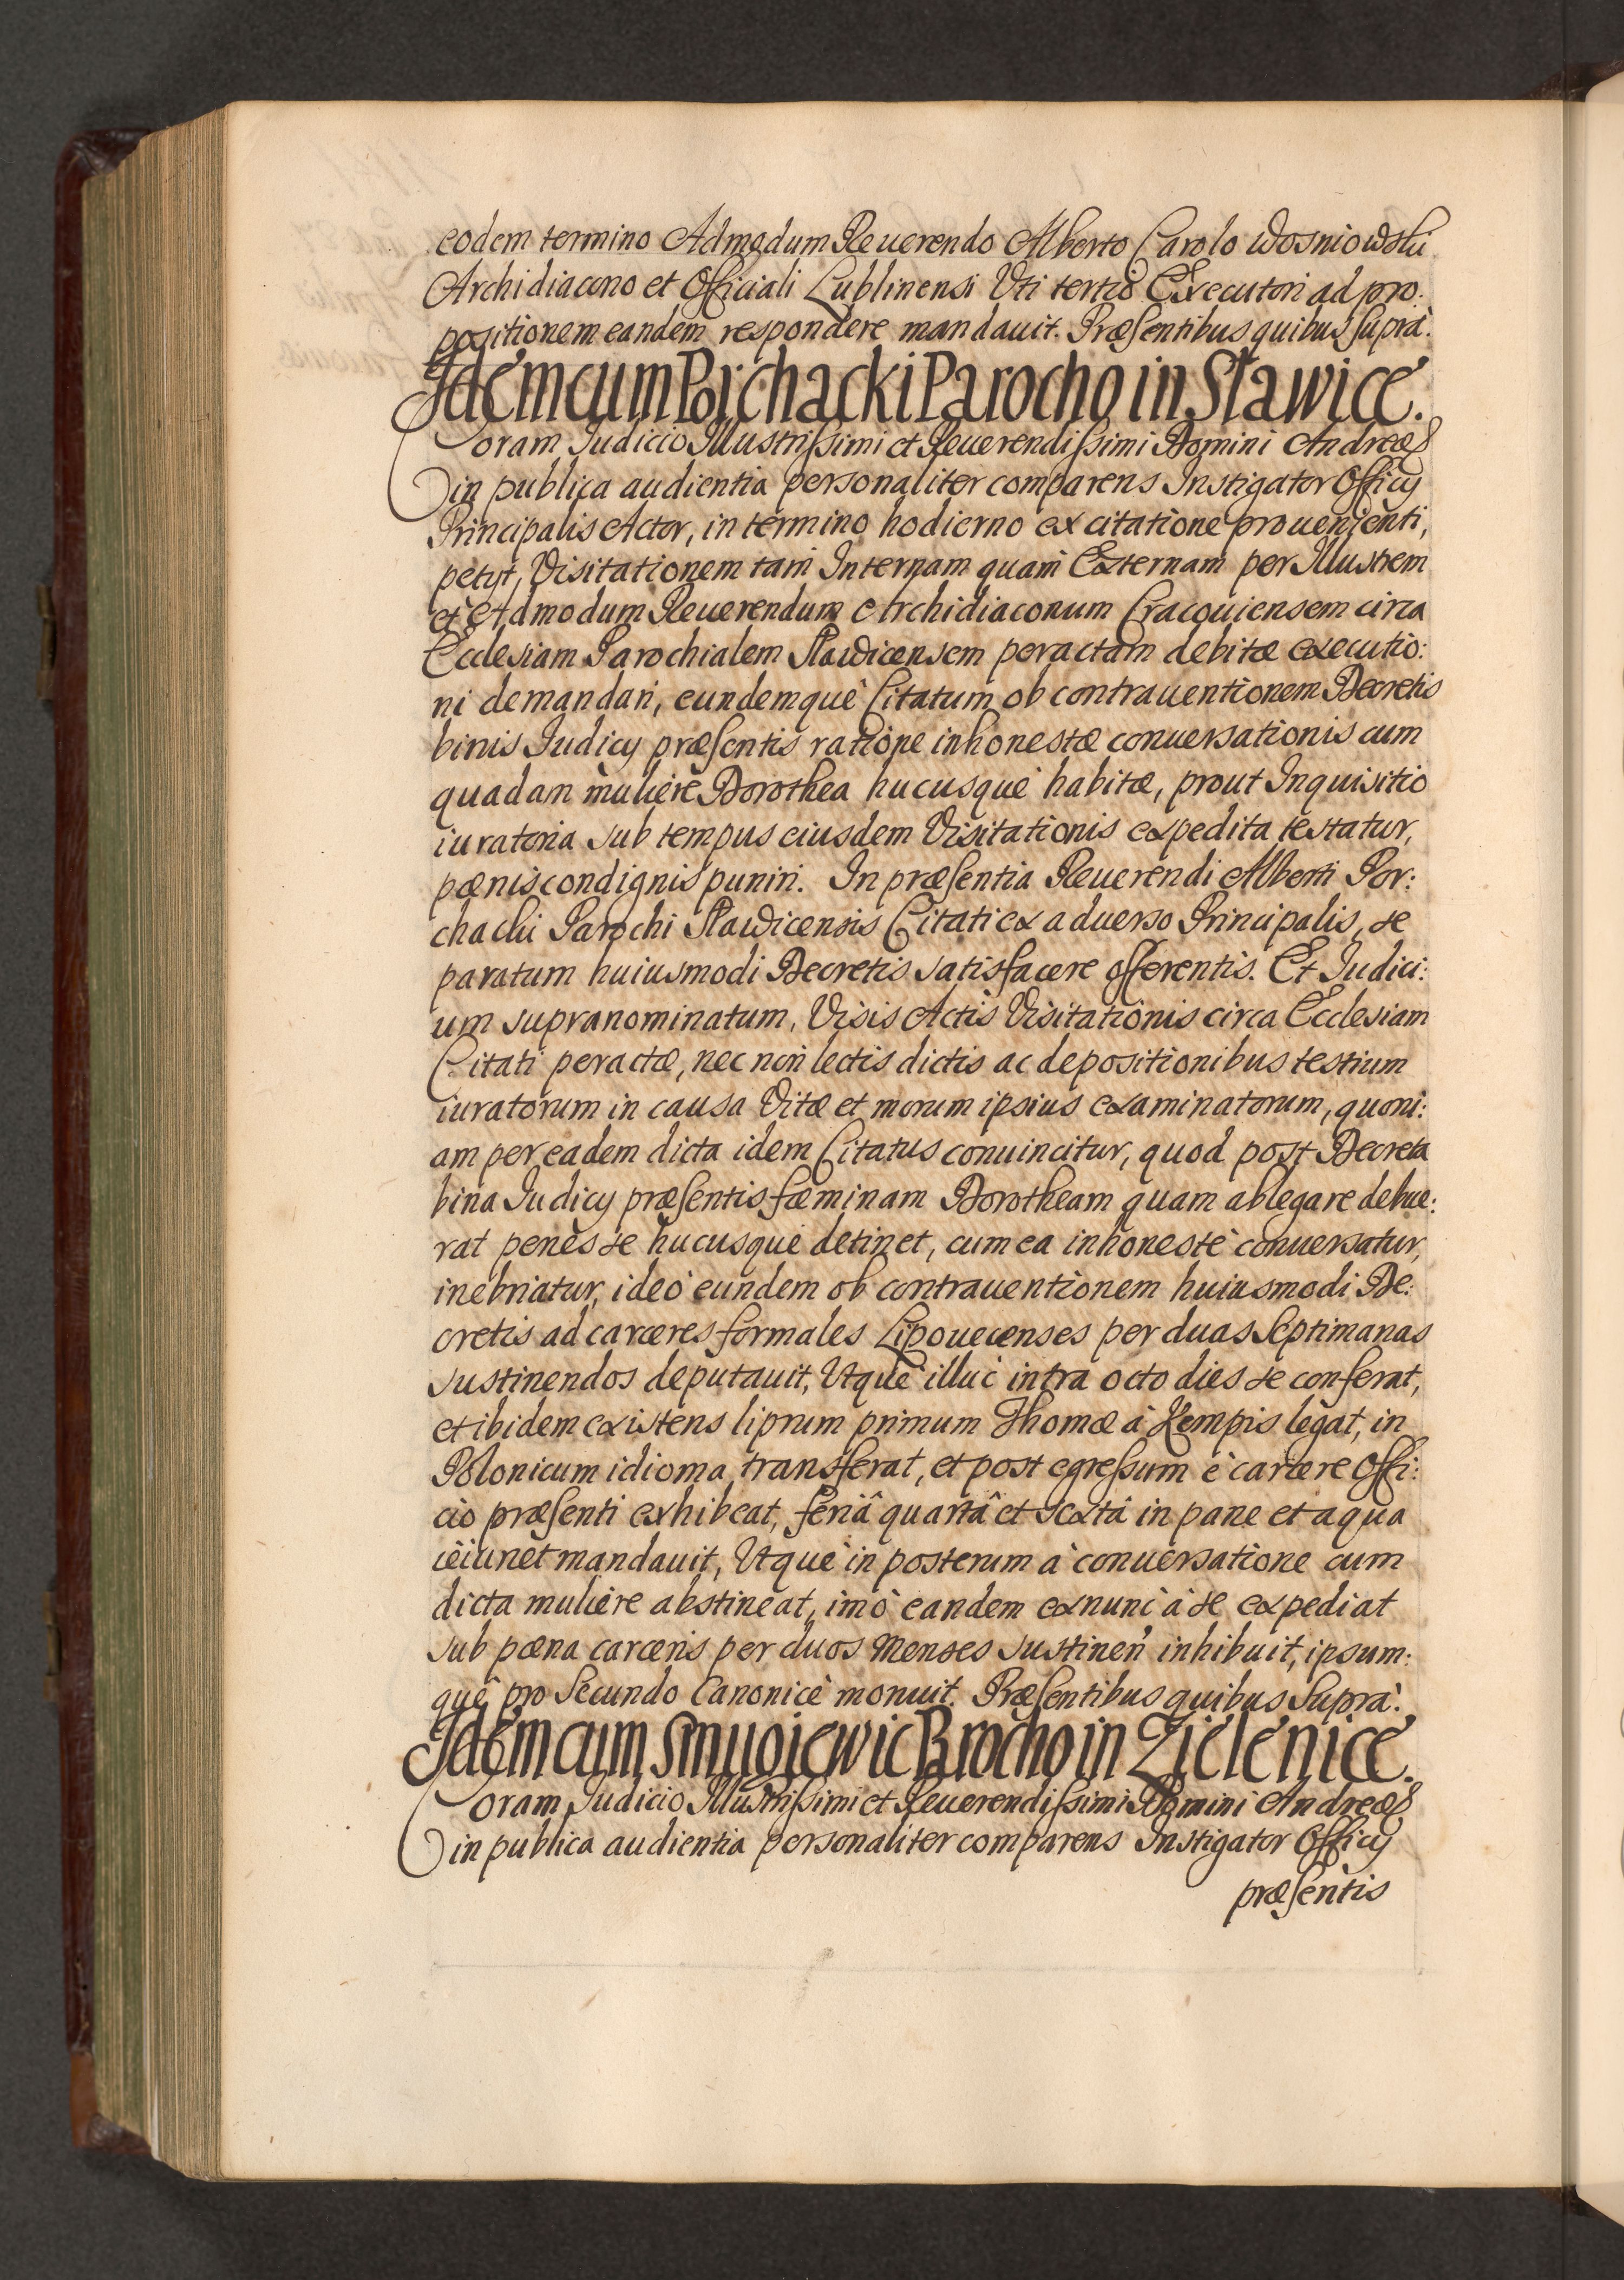 eodem termino Admodum Reuerendo Alberto Carolo Wosniowski
Archidiacono et Officiali Lublinensi Vti tertio Executori ad pro:
positionem eandem respondere mandauit. Præsentibus quibus supra.
Idem cum Porchacki Parocho in Stawice.
Coram Iudicio Illustrissimi et Reuerendissimi Domini Andreæ
in publica audientia personaliter comparens Instigator Officij
Principalis Actor, in termino hodierno ex citatione prouenienti,
petijt, Visitationem tam Internam quam Externam per Illustrem
et Admodum Reuerendum Archidiaconum Cracouiensem circa
Ecclesiam Parochialem Stawicensem peractam debitæ executio:
ni demandari, eundemquè Citatum ob contrauentionem Decretis
binis Iudicij præsentis ratione inhonestæ conuersationis cum
quadam muliere Dorothea hucusquè habitæ, prout Inquisitio
iuratoria sub tempus eiusdem Visitationis expedita testatur,
pœnis condignis puniri. In præsentia Reuerendi Alberti Por:
chacki Parochi Stawicensis Citati ex aduerso Principalis, se
paratum huiusmodi Decretis satisfacere offerentis. Et Iudici:
um supranominatum, Visis Actis Visitationis circa Ecclesiam
Citati peractæ, nec non lectis dictis ac depositionibus testium
iuratorum in causa Vitæ et morum ipsius examinatorum, quoni:
am per eadem dicta idem Citatus conuincitur, quod post Decreta
bina Iudicij præsentis fœminam Dorotheam quam ablegare debue:
rat penès se hucusquè detinet, cum ea inhonestè conuersatur,
inebriatur, ideò eundem ob contrauentionem huiusmodi De:
cretis ad carceres formales Lipouecenses per duas Septimanas
sustinendos deputauit, Vtquè illuc intra octo dies se conferat,
et ibidem existens liprum primum Thomæ à Kempis legat, in
Polonicum idioma transferat, et post egressum è carcere Offi:
cio præsenti exhibeat, feriâ quartâ et sextâ in pane et aqua
ieiunet mandauit, Vtquè in posterum à conuersatione cum
dicta muliere abstineat, imò eandem exnunc à se expediat
sub pœna carceris per duos Menses sustinen inhibuit, ipsum:
què pro Secundo Canonicè monuit. Præsentibus quibus Supra.
Idem cum Smugiewic Parocho in Zielenice.
Coram Iudicio Illustrissimi et Reuerendissimi Domini Andreæ
in publica audientia personaliter comparens Instigator Officij
præsentis